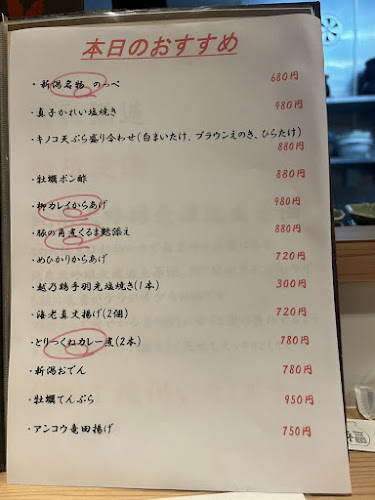 本日のおすすめ
・新潟名物 のっぺ 680円
・真子かれい塩焼き 980円
・キノコ天ぷら盛り合わせ(白まいたけ、ブラウンえのき、ひらたけ)
880円
・牡蠣ポン酢 880円
・柳カレイからあげ 980円
・豚の角煮くるま麩添え 880円
・めひかりからあげ 720円
・越乃鶏手羽先塩焼き(1本) 300円
・海老真丈揚げ(2個) 720円
・とりつくねカレー煮(2本) 780円
・新潟おでん 780円
・牡蠣てんぷら 950円
・アンコウ竜田揚げ 750円